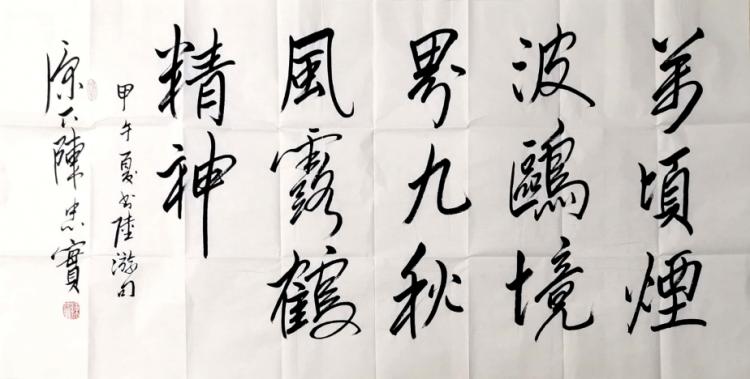 萬頃煙
波鷗境
界九秋
風露鶴
精神
甲午夏書陸游句
原下陳忠實